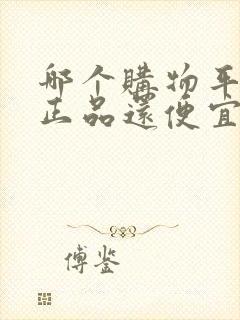 哪个購物平
正品還便宜
傅鉴